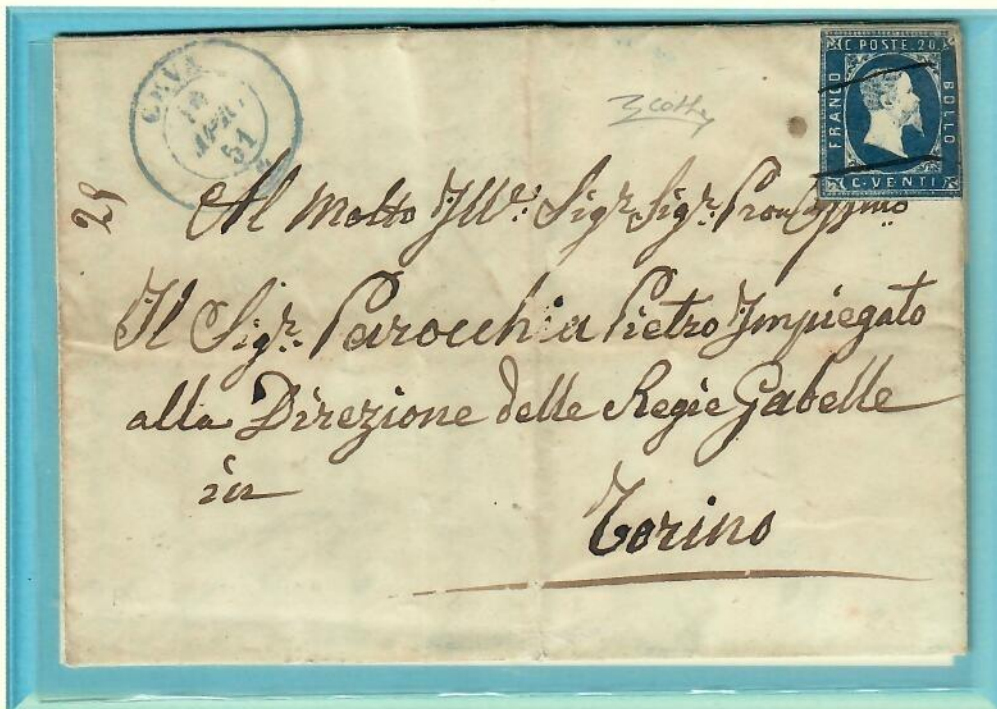 CEVA
APR.
51
C. POSTE. 20.
FRANCO
BOLLO
C. VENTI
29
Al Molto Ill.^e Sig.^r Sig.^r
Il Sig.^r Parocchia Pietro Impiegato
alla Direzione delle Regie Gabelle
in
Torino